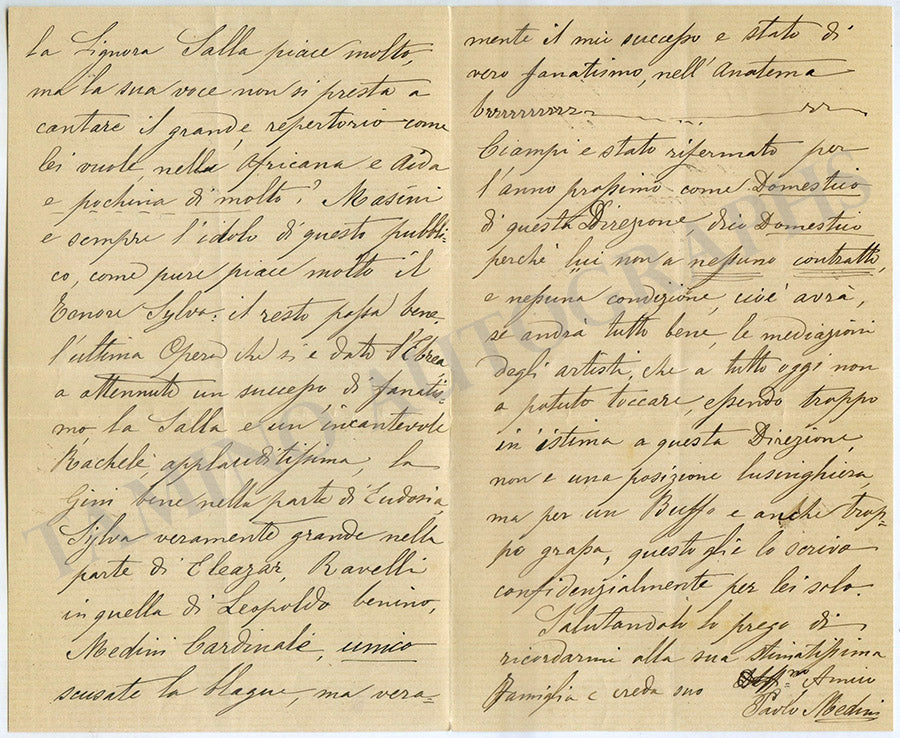 la Signora Salla piace molto,
ma la sua voce non si presta a
cantare il grande repertorio come
lei vuole, nella Africana e Aida
e pochina di molto? Masini
e sempre l'idolo di questo pubbli-
co, come pure piace molto il
Tenore Sylva: il resto passa bene,
l'ultima Opera che si e dato l'Ebrea
a attennuto un successo di fanatis-
mo, la Salla e un'incantevole
Rachele applauditissima, la
Gini bene nella parte di Eudosia,
Sylva veramente grande nella
parte di Eleazar, Ravelli
in quella di Leopoldo benino,
Medini Cardinale, unico
scusate la blague, ma vera-
mente il mio successo e stato di
vero fanatismo, nell'Anatema
brrrrrrrrrr rr
Ciampi e stato rifermato per
l'anno prossimo come Domestico
di questa Direzione dico Domestico
perchè lui non a nessuno contratto,
e nessuna condizione, cioè avrà,
se andra tutto bene, le mediazioni
degli artisti, che a tutto oggi non
a potuto toccare, essendo troppo
in istima a questa Direzione,
non e una posizione lusinghiera,
ma per un Buffo e anche trop-
po grassa, questo glie lo scrivo
confidenzialmente per lei solo.
Salutandoli lo prego di
ricordarmi alla sua stimatissima
Famiglia e creda suo Amico
Paolo Medini
TAMINO AUTOGRAPHS